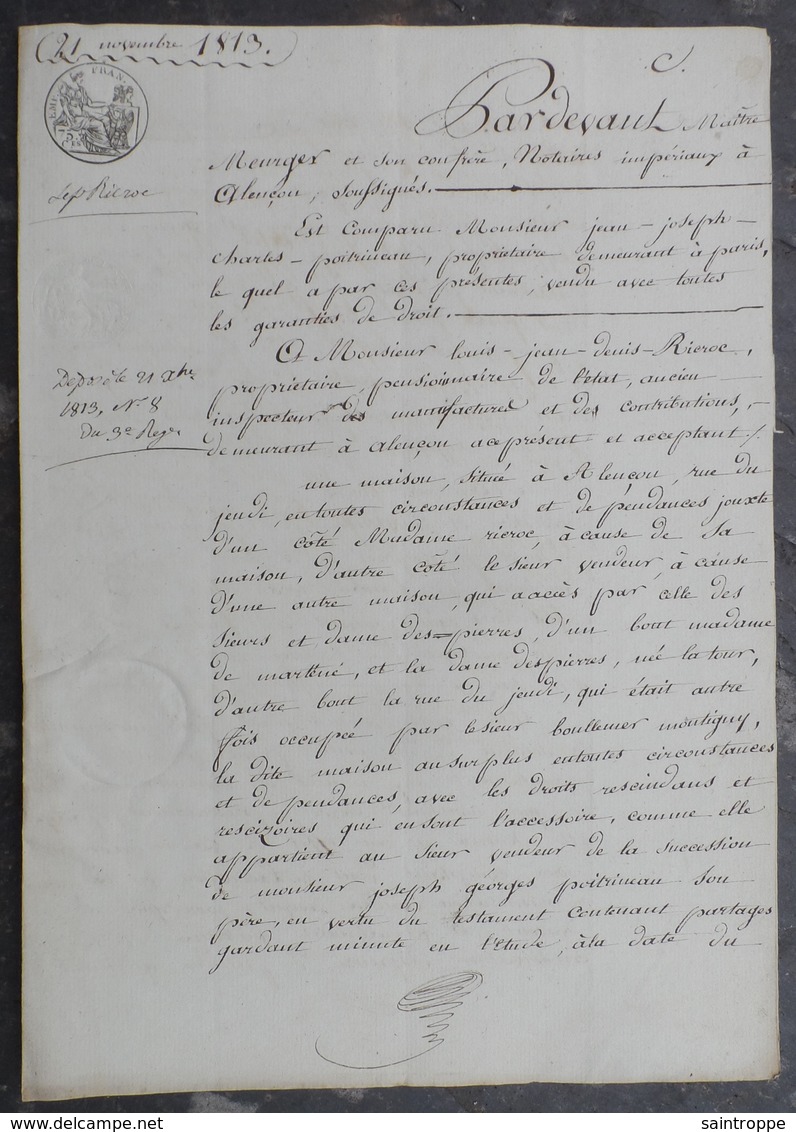 (21 novembre 1813.
C.
EMP. FRAN.
Pardevant Maître
Meurger et son confrère, Notaires impériaux à
Alençon, soussignés.
Est Comparu Monsieur jean-joseph-
charles-poitrineau, propriétaire demeurant à paris,
le quel a par ces présentes, vendu avec toutes
les garanties de droit.
A Monsieur louis-jean-denis-Rieroc,
propriétaire, pensionnaire de l'état, ancien
inspecteur des manufactures et des contributions,
demeurant à alençon ace présent et acceptant /.
une maison, située à Alençon, rue du
jeudi, en toutes circonstances et de pendances jouxte
d'un côté Madame rieroc, à cause de sa
maison, d'autre côté le sieur vendeur, à cause
d'une autre maison, qui a accès par celle des
sieurs et dame des=pierres, d'un bout madame
de martené, et la dame despierres, née la tour,
d'autre bout la rue du jeudi, qui était autre
fois occupée par le sieur boullemer montigny,
la dite maison au surplus en toutes circonstances
et de pendances, avec les droits rescindans et
rescizoires qui en sont l'accessoire, comme elle
appartient au sieur vendeur de la succession
de monsieur joseph géorges poitrineau son
père, en vertu du testament contenant partages
gardant minute en l'étude, à la date du
Rieroc
Déposé le 21 Xbre
1813, N.° 8
Du 3e Reg.e
delcampe.net
saintroppe